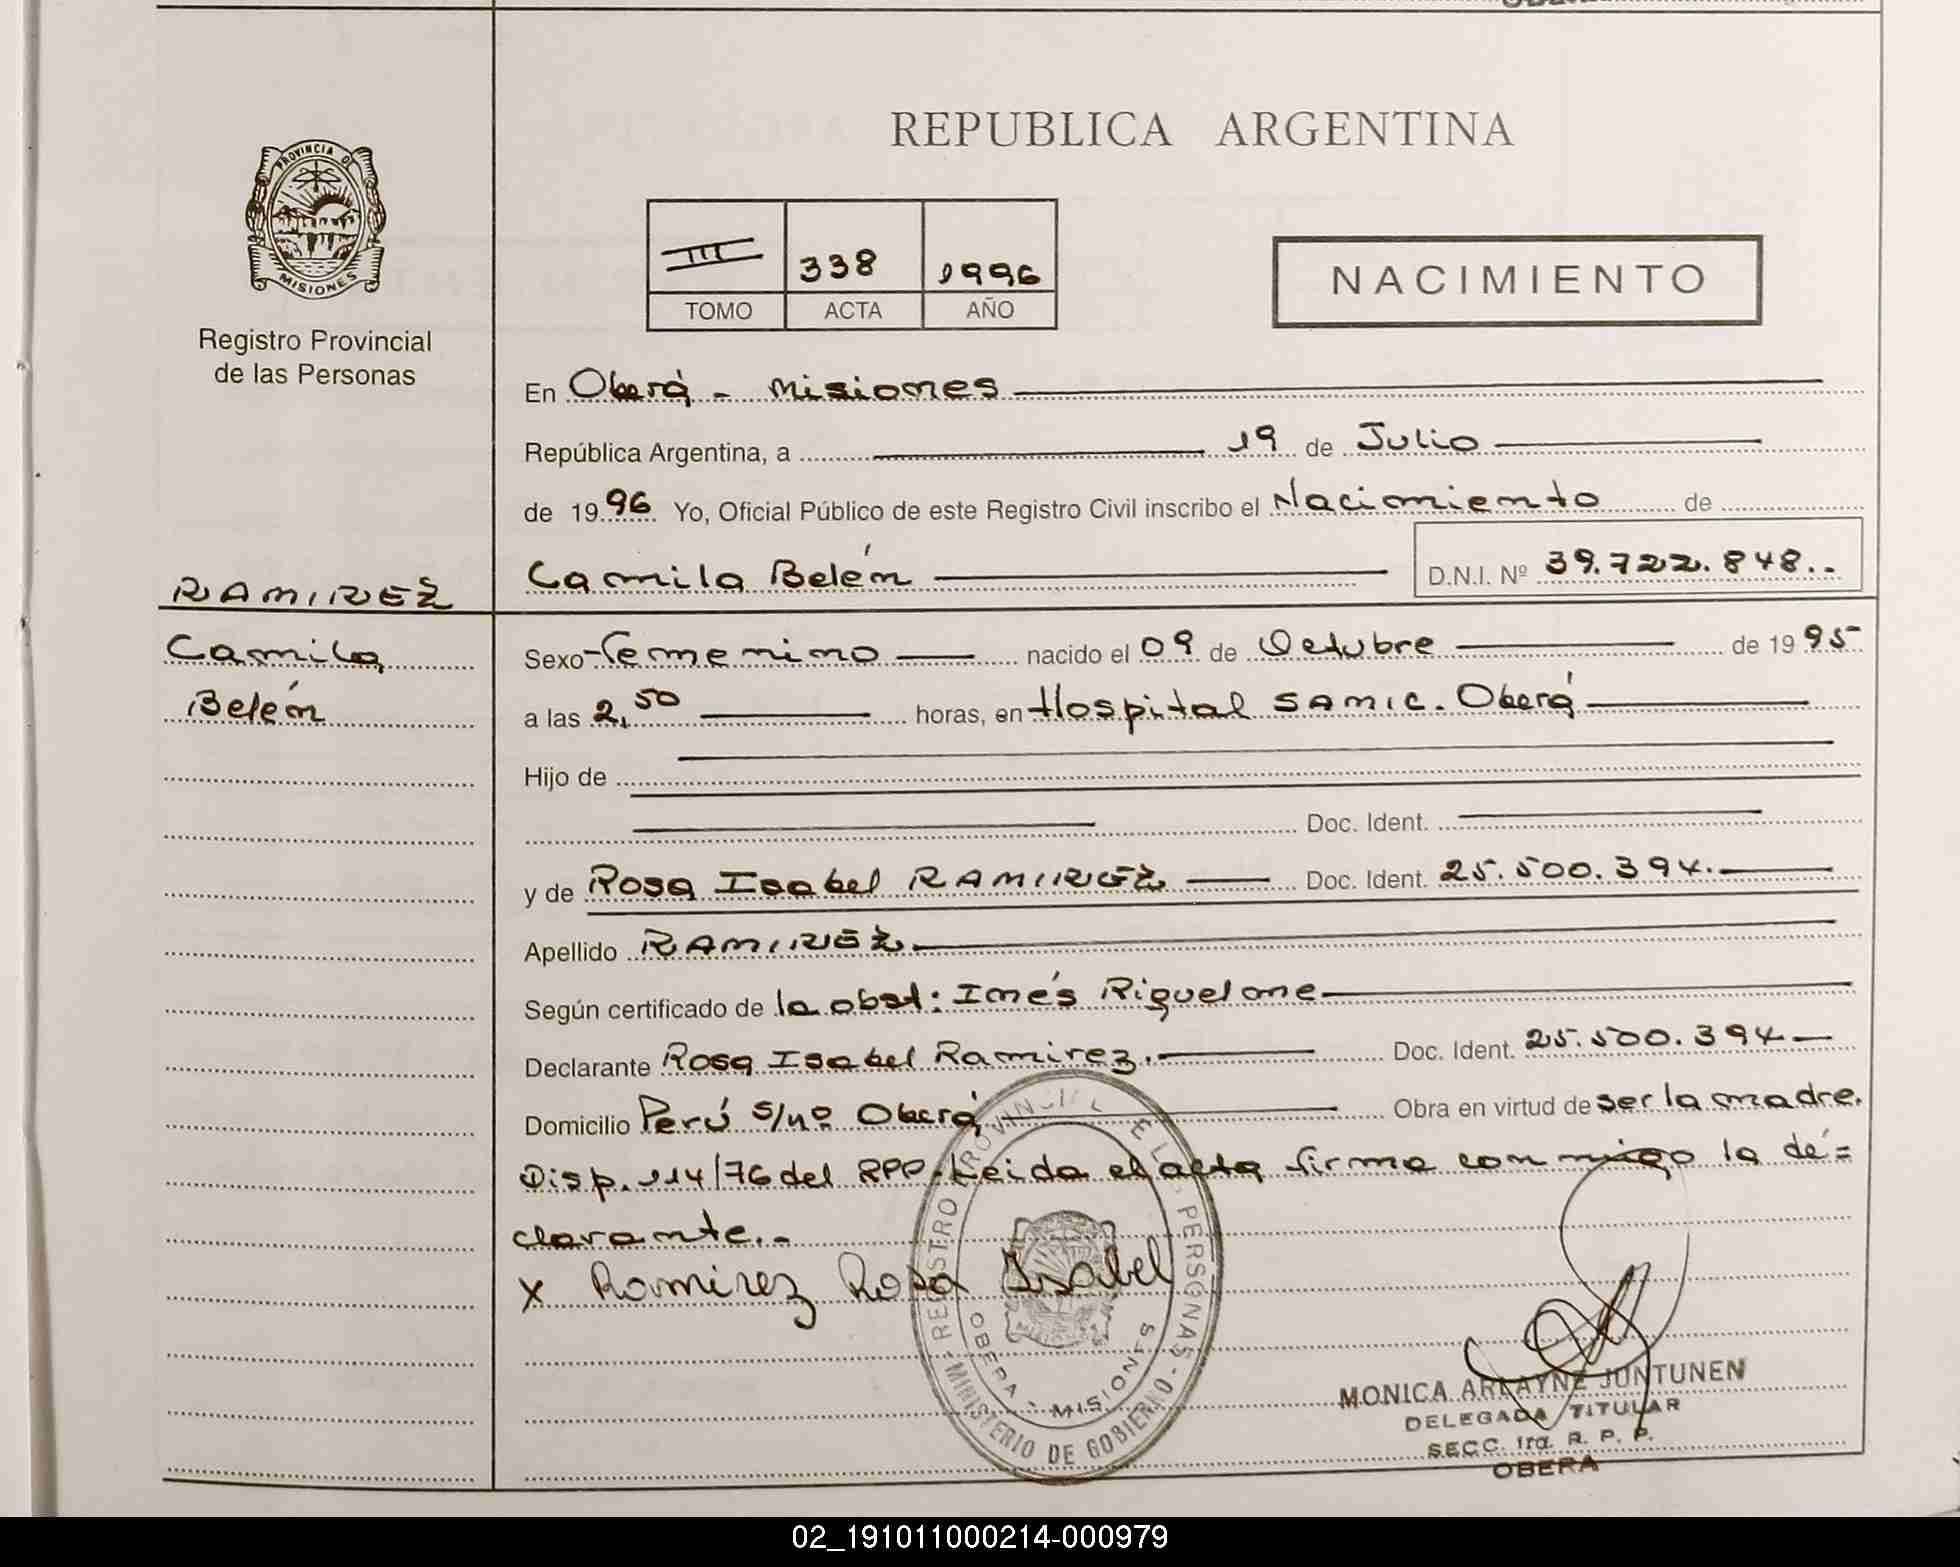 REPUBLICA ARGENTINA
PROVINCIA D
MISIONES
Registro Provincial
de las Personas
III 338 1996
TOMO ACTA AÑO
NACIMIENTO
En Oberá - Misiones
República Argentina, a 19 de Julio
de 1996 Yo, Oficial Público de este Registro Civil inscribo el Nacimiento de
Camila Belén D.N.I. Nº 39.722.848..
RAMIREZ
Camila
Belén
Sexo Femenino nacido el 09 de Octubre de 1995
a las 2,50 horas, en Hospital SAMIC. Oberá
Hijo de
Doc. Ident.
y de Rosa Isabel RAMIREZ Doc. Ident. 25.500.394.
Apellido RAMIREZ.
Según certificado de la obst: Inés Riquelme
Declarante Rosa Isabel Ramirez. Doc. Ident. 25.500.394
Domicilio Perú s/nº Oberá Obra en virtud de ser la madre.
Disp. 114/76 del RPP. Leida el acta firma conmigo la de=
clarante.-
x Ramirez Rosa Isabel
REGISTRO PROVINCIAL DE LAS PERSONAS - MINISTERIO DE GOBIERNO -
OBERA - MISIONES
MONICA ARLAYNE JUNTUNEN
DELEGADA TITULAR
SECC. 1ra. R. P. P.
OBERA
02_191011000214-000979